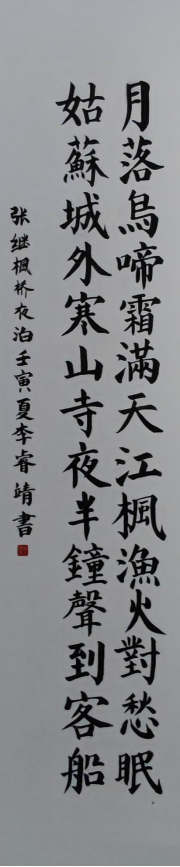 月落烏啼霜滿天江楓漁火對愁眠
姑蘇城外寒山寺夜半鐘聲到客船
张继枫桥夜泊壬寅夏李睿靖書